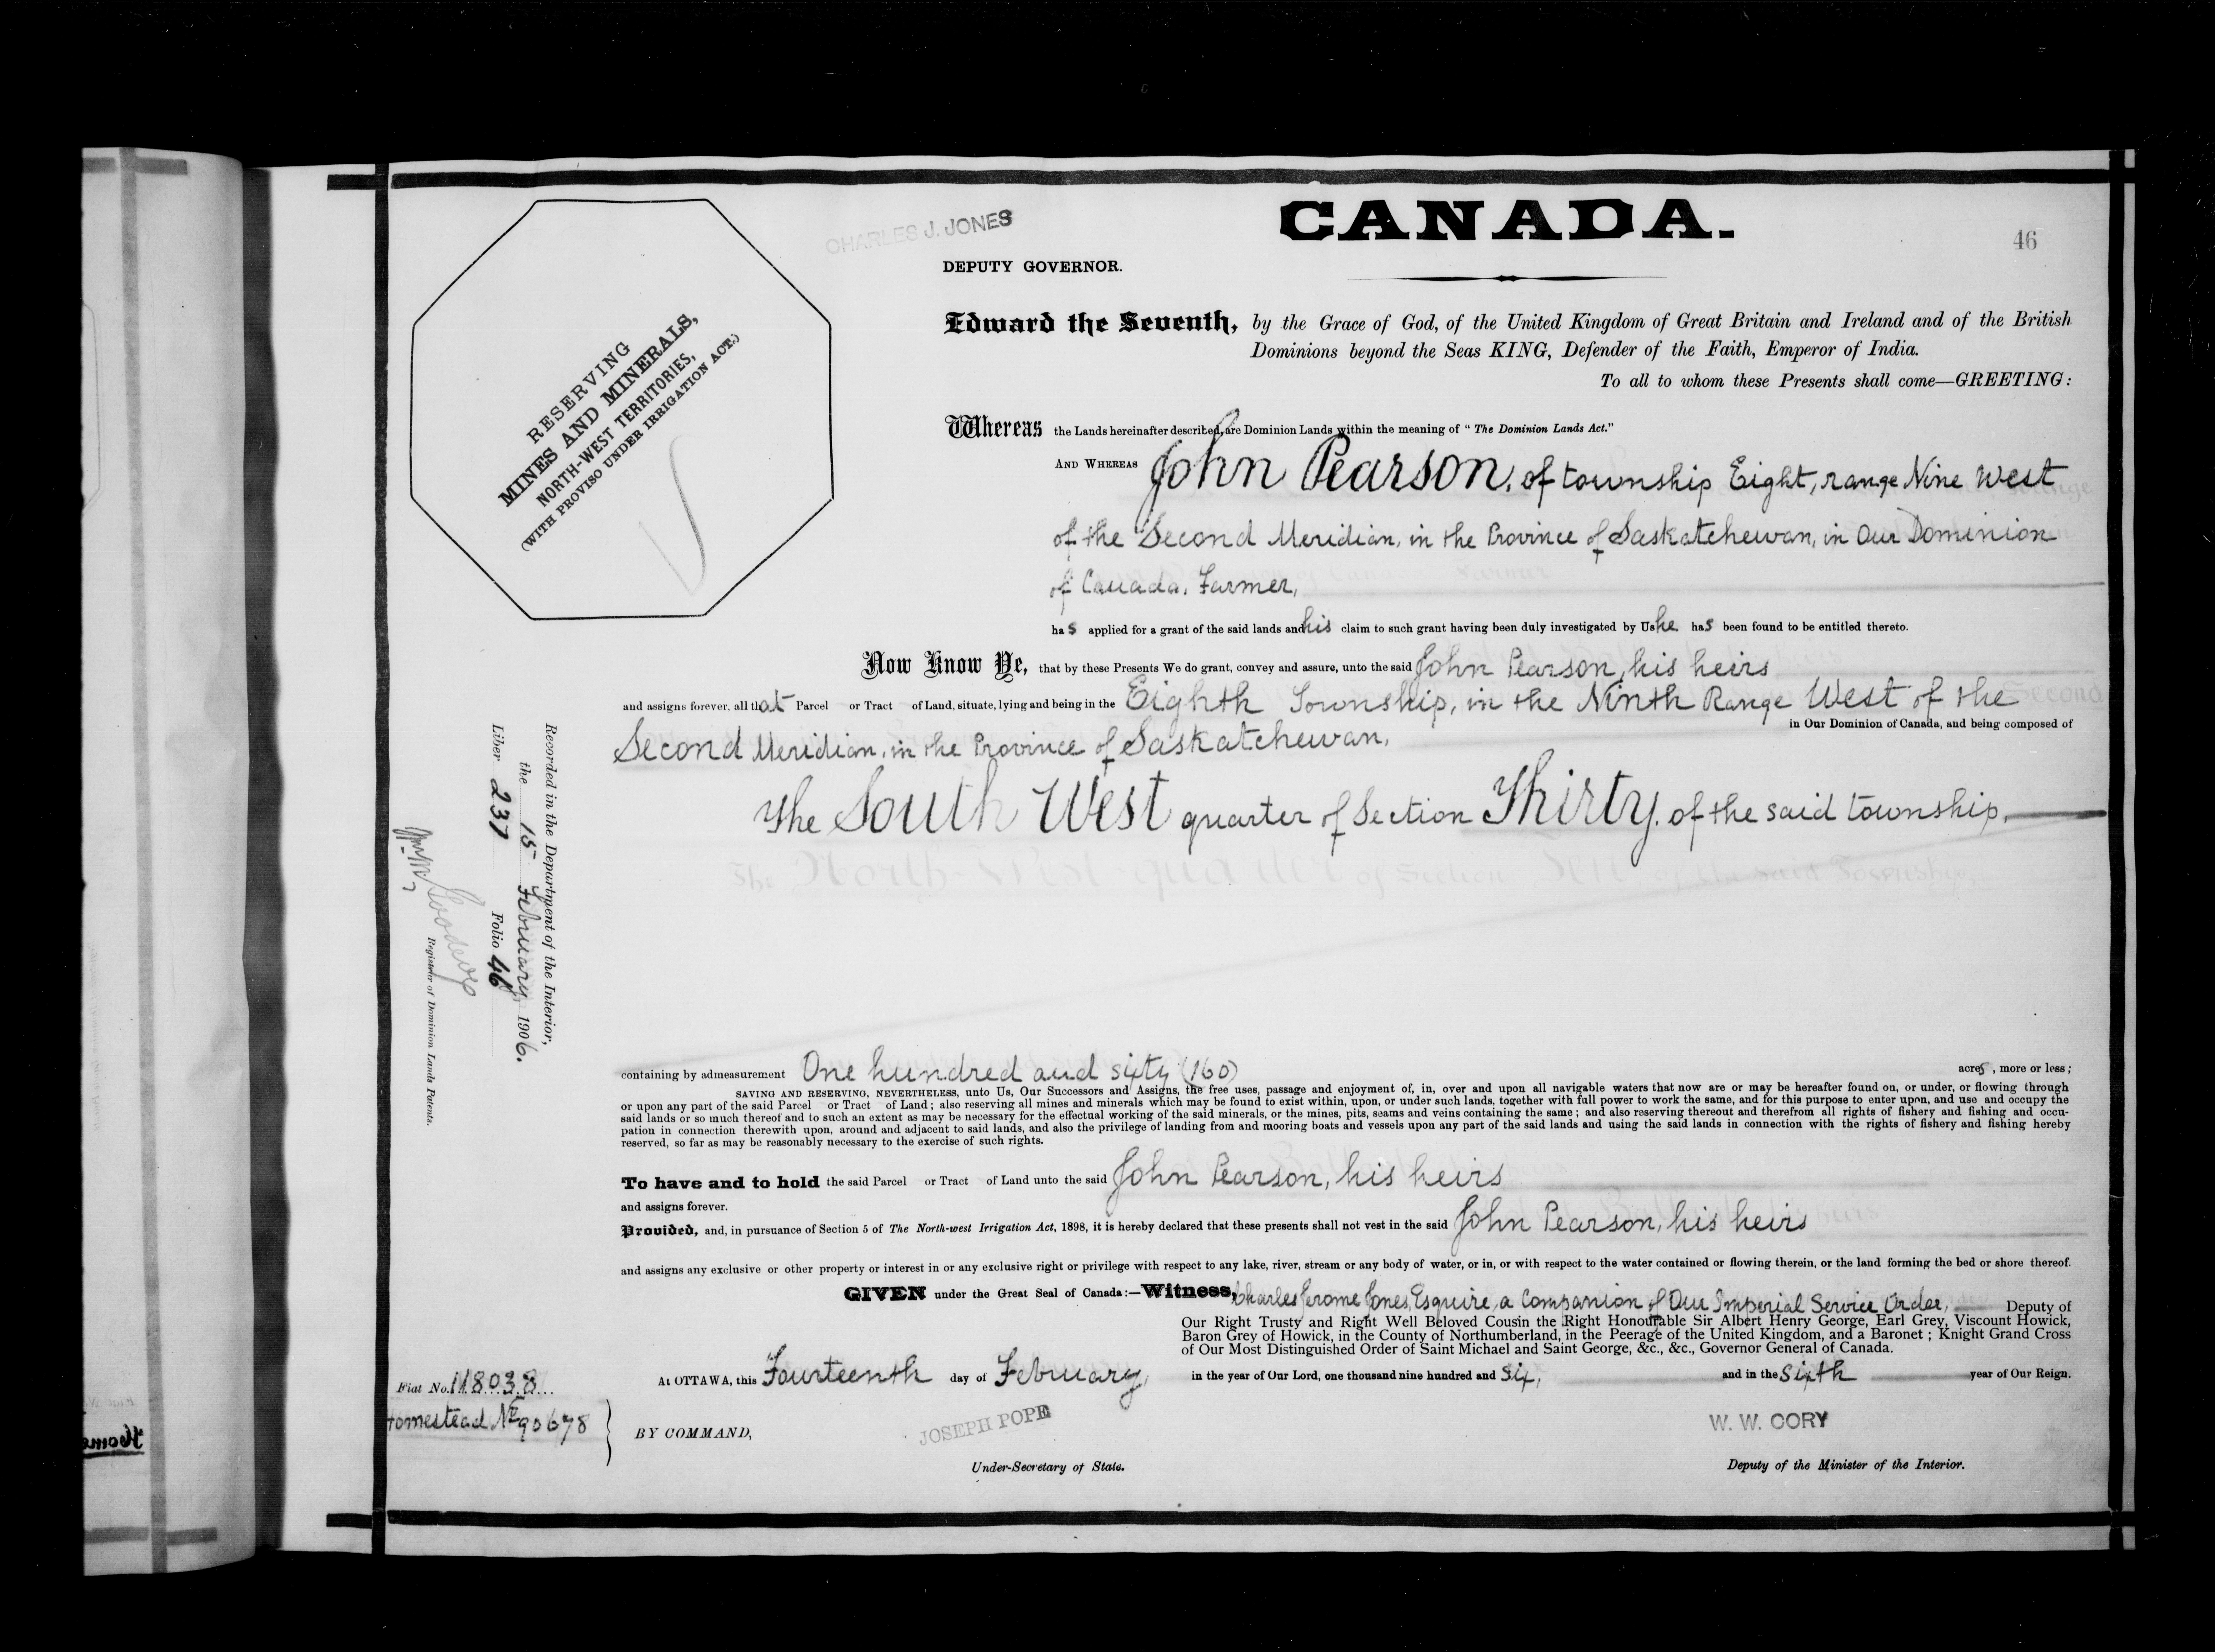 CHARLES J. JONES
CANADA.
46
DEPUTY GOVERNOR.
RESERVING
MINES AND MINERALS,
NORTH-WEST TERRITORIES,
(WITH PROVISO UNDER IRRIGATION ACT.)
Edward the Seventh, by the Grace of God, of the United Kingdom of Great Britain and Ireland and of the British
Dominions beyond the Seas KING, Defender of the Faith, Emperor of India.
To all to whom these Presents shall come—GREETING:
Whereas the Lands hereinafter described, are Dominion Lands within the meaning of "The Dominion Lands Act."
AND WHEREAS John Pearson, of township Eight, range Nine West
of the Second Meridian, in the Province of Saskatchewan, in Our Dominion
of Canada, Farmer,
has applied for a grant of the said lands and his claim to such grant having been duly investigated by Us he has been found to be entitled thereto.
Now Know Ye, that by these Presents We do grant, convey and assure, unto the said John Pearson, his heirs
and assigns forever, all that Parcel or Tract of Land, situate, lying and being in the Eighth Township, in the Ninth Range West of the
Second Meridian, in the Province of Saskatchewan, in Our Dominion of Canada, and being composed of
The South West quarter of Section Thirty, of the said township,
Recorded in the Department of the Interior,
the 15 February 1906.
Liber 237 Folio 46
Registrar of Dominion Lands Patents.
containing by admeasurement One hundred and sixty (160) acres, more or less;
SAVING AND RESERVING, NEVERTHELESS, unto Us, Our Successors and Assigns, the free uses, passage and enjoyment of, in, over and upon all navigable waters that now are or may be hereafter found on, or under, or flowing through
or upon any part of the said Parcel or Tract of Land; also reserving all mines and minerals which may be found to exist within, upon, or under such lands, together with full power to work the same, and for this purpose to enter upon, and use and occupy the
said lands or so much thereof and to such an extent as may be necessary for the effectual working of the said minerals, or the mines, pits, seams and veins containing the same; and also reserving thereout and therefrom all rights of fishery and fishing and occu-
pation in connection therewith upon, around and adjacent to said lands, and also the privilege of landing from and mooring boats and vessels upon any part of the said lands and using the said lands in connection with the rights of fishery and fishing hereby
reserved, so far as may be reasonably necessary to the exercise of such rights.
To have and to hold the said Parcel or Tract of Land unto the said John Pearson, his heirs
and assigns forever.
Provided, and, in pursuance of Section 5 of The North-west Irrigation Act, 1898, it is hereby declared that these presents shall not vest in the said John Pearson, his heirs
and assigns any exclusive or other property or interest in or any exclusive right or privilege with respect to any lake, river, stream or any body of water, or in, or with respect to the water contained or flowing therein, or the land forming the bed or shore thereof.
GIVEN under the Great Seal of Canada:—Witness, Charles Jerome Jones, Esquire, a Companion of Our Imperial Service Order, Deputy of
Our Right Trusty and Right Well Beloved Cousin the Right Honourable Sir Albert Henry George, Earl Grey, Viscount Howick,
Baron Grey of Howick, in the County of Northumberland, in the Peerage of the United Kingdom, and a Baronet; Knight Grand Cross
of Our Most Distinguished Order of Saint Michael and Saint George, &c., &c., Governor General of Canada.
At OTTAWA, this Fourteenth day of February, in the year of Our Lord, one thousand nine hundred and six, and in the Sixth year of Our Reign.
Fiat No. 118038
Homestead No 90678
BY COMMAND,
JOSEPH POPE
Under-Secretary of State.
W. W. CORY
Deputy of the Minister of the Interior.